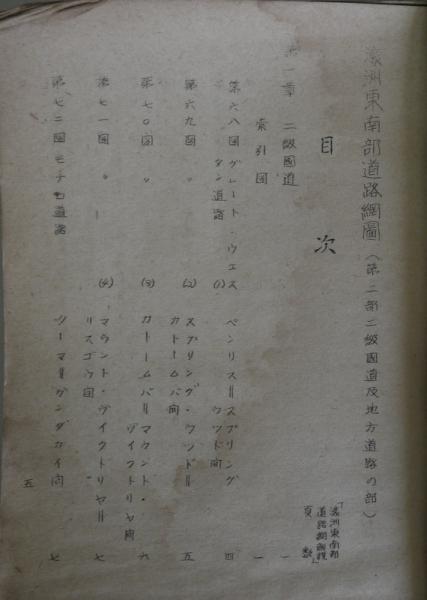 濠洲東南部道路網圖（第二部二級國道及地方道路の部）
目次
「濠洲東南部
道路網圖説」
頁数
第一章 二級國道 一
索引図 一
第六八図 グレート・ウエス
タン道路 (1) ペンリス＝スプリング
ウッド間 四
第六九図 〃 (2) スプリング・ウッド＝
カトームバ間 五
第七〇図 〃 (3) カトームバ＝マウント・
ヴィクトリヤ間 六
第七一図 〃 (4) マウント・ヴィクトリヤ＝
リスゴウ間 七
第七二図 モナロ道路 クーマ＝ボンダカイ間 七
五